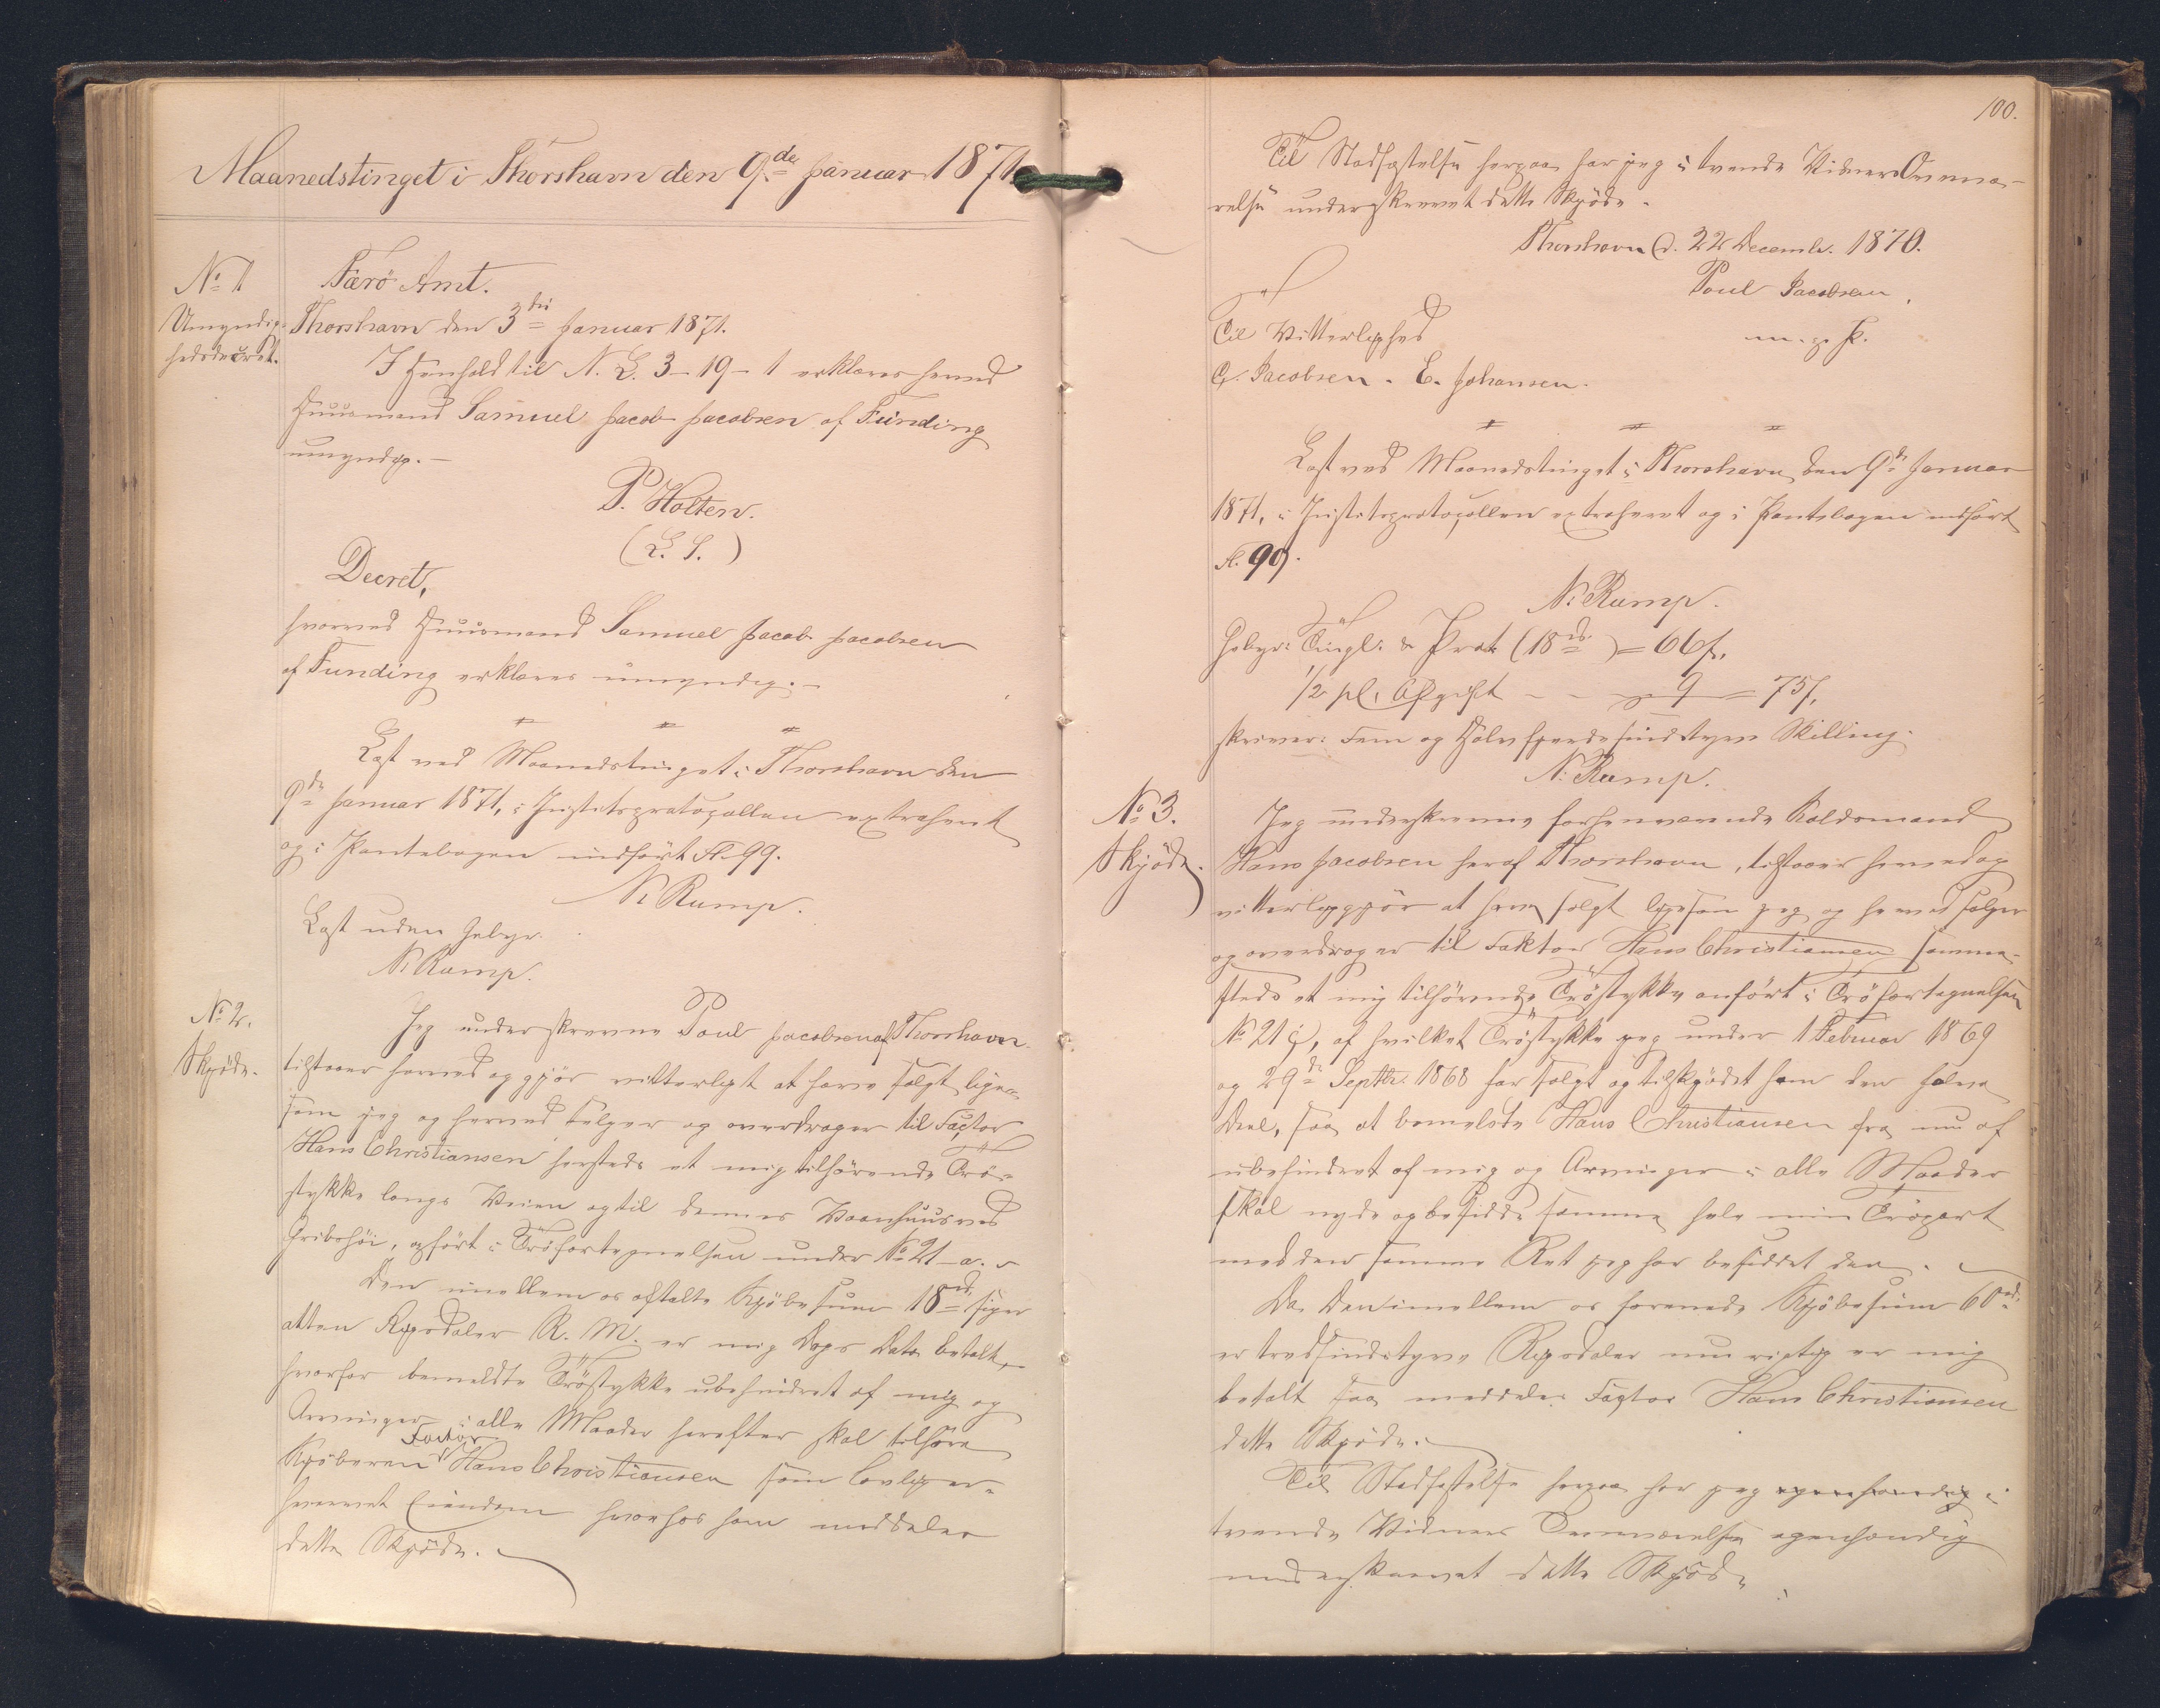 Maanedstinget i Thorshavn den 9de Januar 1871.
No 1
Umyndig-
hedsdecret.
Færø Amt.
Thorshavn den 3die Januar 1871.
I Henhold til N. L. 3-19-1 erklæres herved
Huusmand Samuel Jacob Jacobsen af Funding
umyndig.-
P. Holten.
(L. S.)
Decret,
hvorved Huusmand Samuel Jacob Jacobsen
af Funding erklæres umyndig.-
Læst ved Maanedstinget i Thorshavn den
9de Januar 1871, i Justitsprotocollen extraheret
og i Pantebogen indført Fl. 99.
N. Rump.
Læst uden Gebyr.
N. Rump.
No 2.
Skjøde.
Jeg underskrevne Poul Jacobsen af Thorshavn
tilstaaer herved og gjør vitterligt at have solgt lige-
som jeg og herved sælger og overdrager til Factor
Hans Christiansen hersteds et mig tilhørende Trø-
stykke langs Veien og til dennes Vaanhuus ved
Gribshøi, opført i Trøfortegnelsen under No 21-a.
Den imellem os aftalte Kjøbesum 18rd siger
atten Rigsdaler R. M. er mig Dags Dato betalt,
hvorfor bemeldte Trøstykke ubehindret af mig og
Arvinger i alle Maader herefter skal tilhøre
Kjøberen Factor Hans Christiansen som lovlig er-
hvervet Eiendom hvorhos ham meddeles
dette Skjøde.
100.
Til Stadfæstelse herpaa har jeg i tvende Vidners Overvæ-
relse underskrevet dette Skjøde.
Thorshavn d. 22 Decembr. 1870.
Poul Jacobsen,
m. p. P.
Til Vitterlighed
C. Jacobsen. E. Johansen.
Læst ved Maanedstinget i Thorshavn den 9de Januar
1871, i Justitsprotocollen extraheret og i Pantebogen indført
Fl. 99.
N. Rump.
Gebyr: Tingl. & Prot (18rd) = 66f.
1/2 pCt. Afgift - - 9 = 75f.
skriver: Fem og Halvfjerdesindstyve Skilling.
N. Rump.
No 3.
Skjøde.
Jeg underskrevne forhenværende Koldsmand
Hans Jacobsen heraf Thorshavn, tilstaaer herved og
vitterliggjør at have solgt ligesom jeg og herved sælger
og overdrager til Faktor Hans Christiansen samme-
steds et mig tilhørende Trøstykke anført i Trøfortegnelsen
No 21 c, af hvilket Trøstykke jeg under 1 Februar 1869
og 29de Septbr. 1868 har solgt og tilskjødet ham den halve
Deel, saa at bemeldte Hans Christiansen fra nu af
ubehindret af mig og Arvinger i alle Maader
skal nyde og besidde samme hele min Trøpart
med den samme Ret jeg har besiddet den.
Da den imellem os forenede Kjøbesum 60rd.
er tredsindstyve Rigsdaler nu rigtig er mig
betalt saa meddeles Factor Hans Christiansen
dette Skjøde.
Til Stadfæstelse herpaa har jeg egenhændig i
tvende Vidners Overværelse egenhændig
underskrevet dette Skjøde.